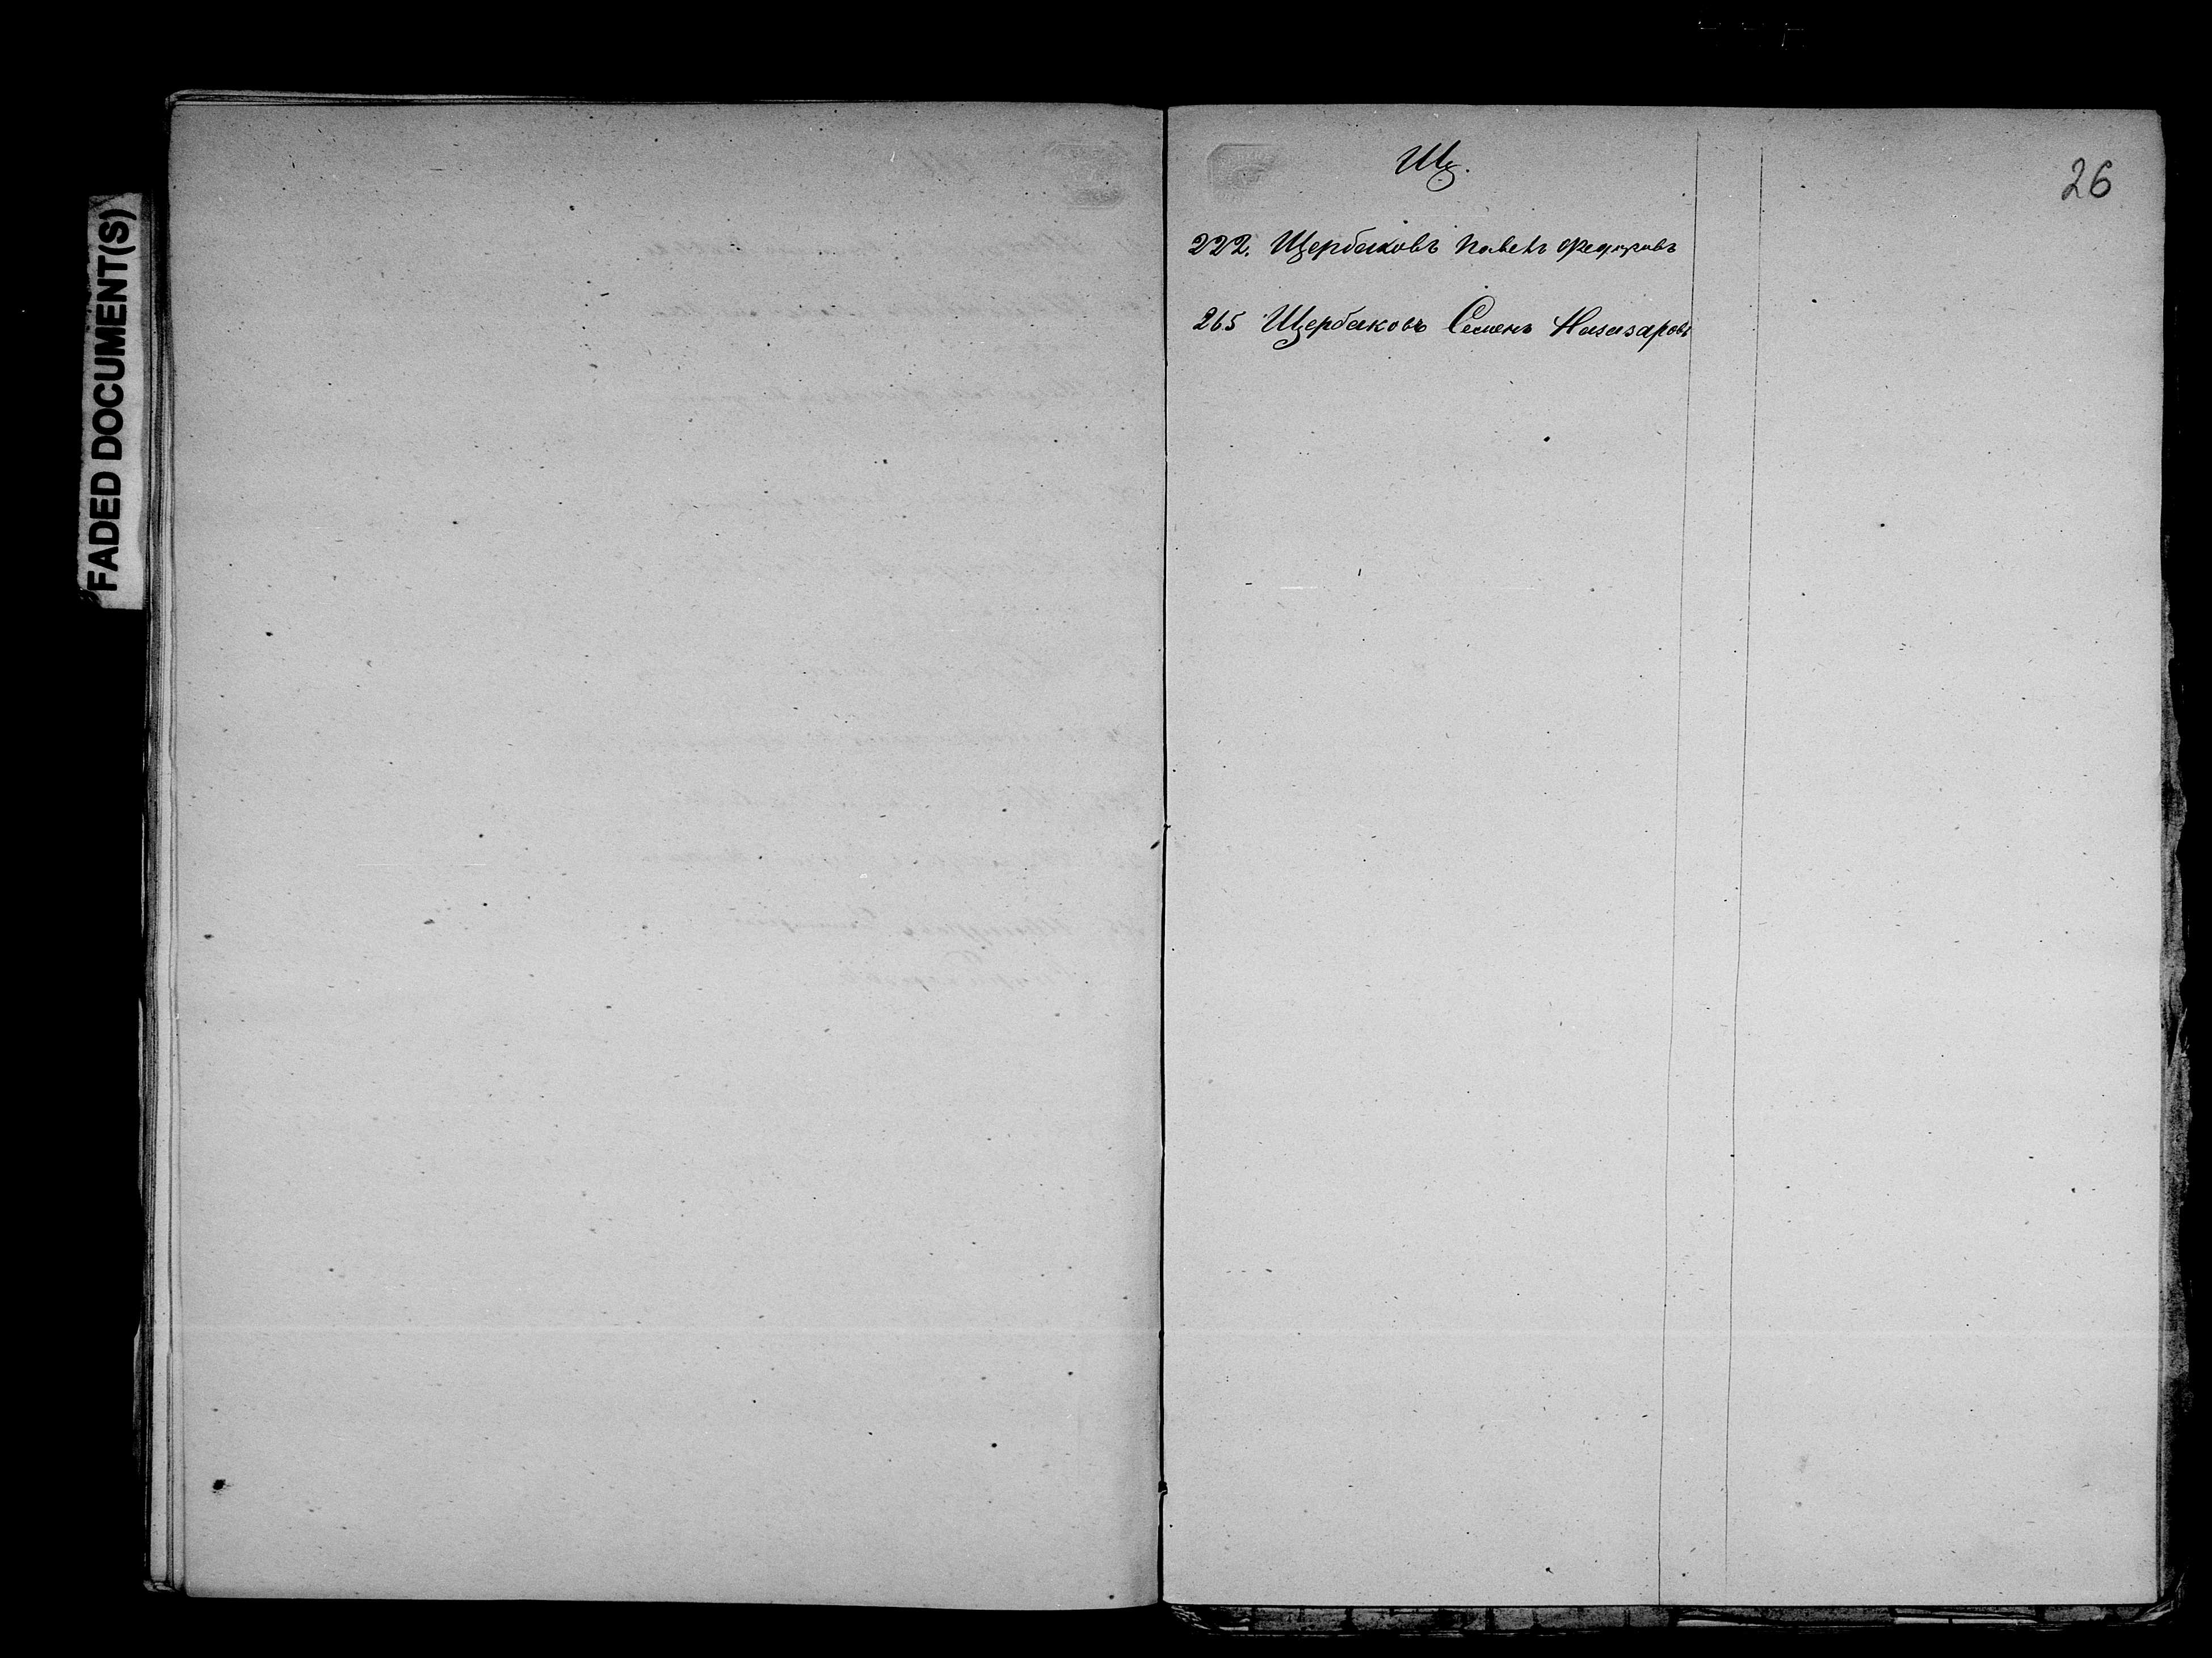 FADED DOCUMENT(S)
Щ.
26
222. Щербаковъ Павелъ Федоровъ
265 Щербаковъ Семенъ Назаровъ